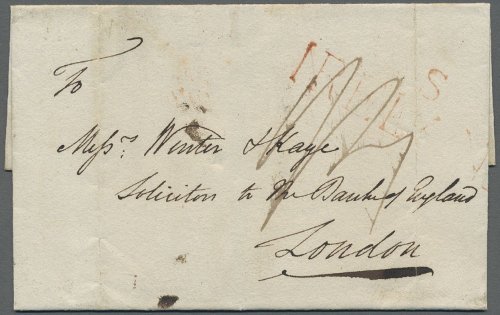 To
Messrs. Winter & Kaye
Solicitors to the Bank of England
London